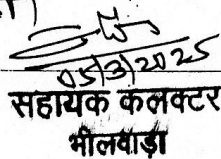 05/3/2025
सहायक कलक्टर
भीलवाड़ा